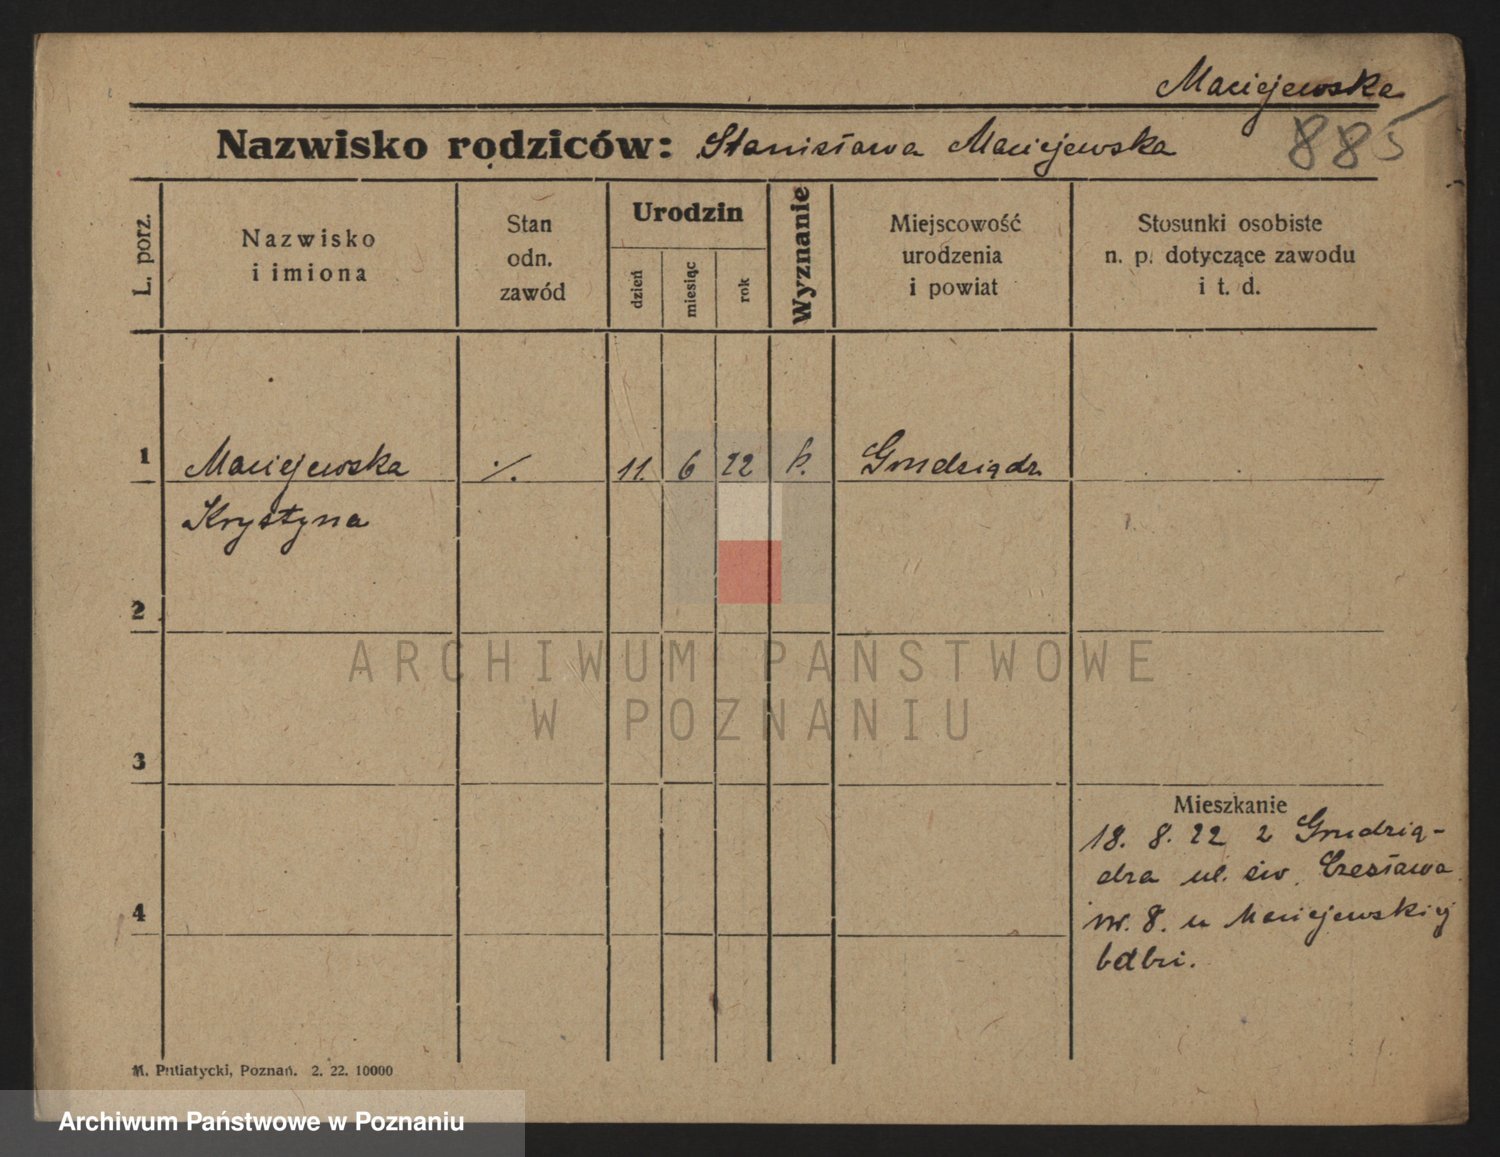 Maciejewska
Nazwisko rodziców: Stanisława Maciejewska
885
L. porz.
Nazwisko
i imiona
Stan
odn.
zawód
Urodzin
dzień
miesiąc
rok
Wyznanie
Miejscowość
urodzenia
i powiat
Stosunki osobiste
n. p. dotyczące zawodu
i t. d.
1 Maciejewska ./. 11. 6 22 k. Grudziądz
Krystyna
2
3
4
Mieszkanie
18. 8. 22 z Grudzią-
dza ul. św. Czesława
nr. 8. u Maciejewskiej
M. Putiatycki, Poznań. 2. 22. 10000
ARCHIWUM PAŃSTWOWE
W POZNANIU
Archiwum Państwowe w Poznaniu